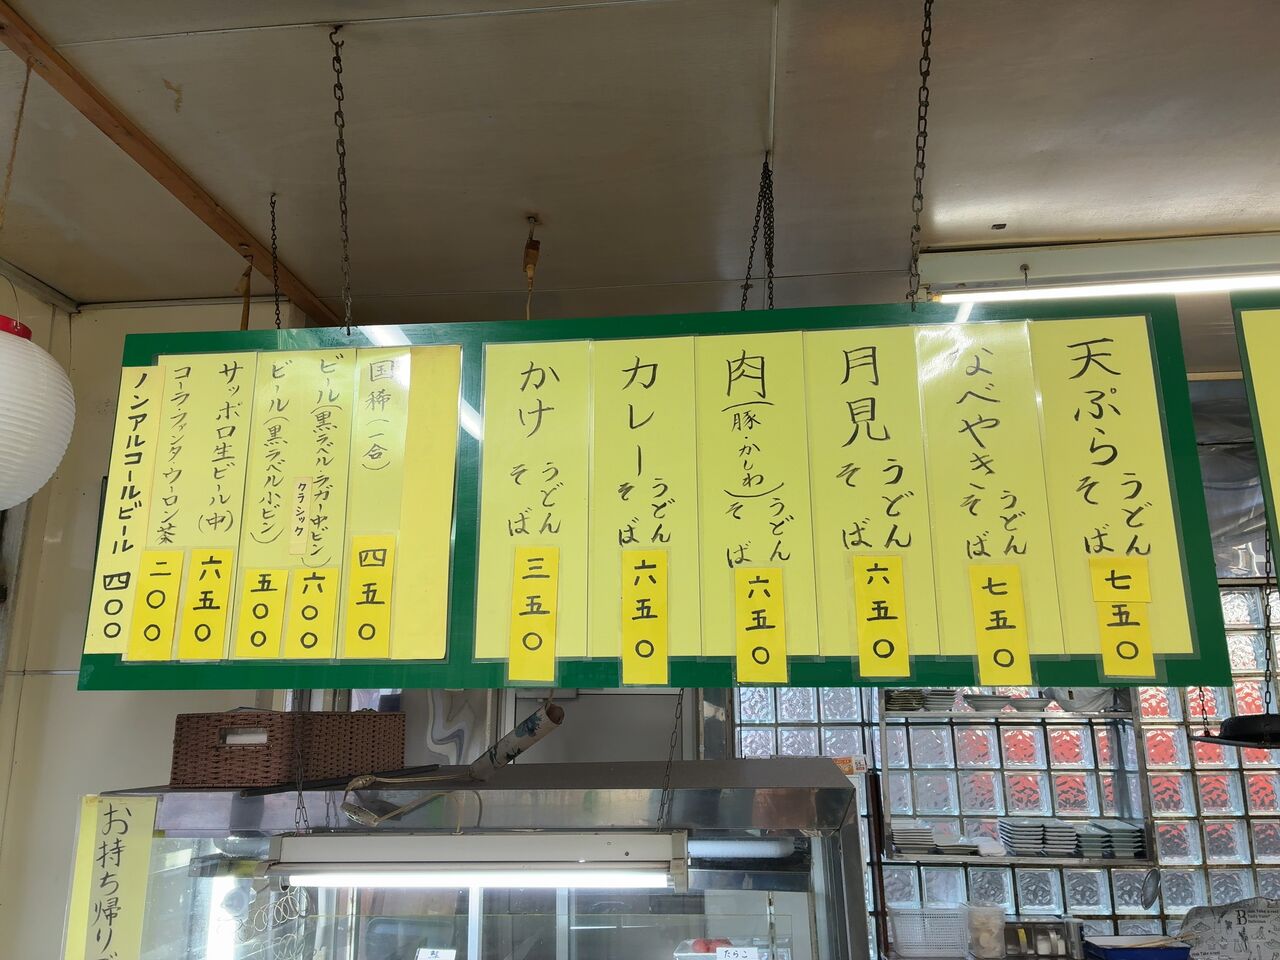 天ぷら うどん そば 七五〇
なべやき うどん そば 七五〇
月見 うどん そば 六五〇
肉(豚・かしわ) うどん そば 六五〇
カレー うどん そば 六五〇
かけ うどん そば 三五〇
国稀(一合) 四五〇
ビール(黒ラベルラガー中ビン) クラシック 六〇〇
ビール(黒ラベル小ビン) 五〇〇
サッポロ生ビール(中) 六五〇
コーラ・ファンタ ウーロン茶 二〇〇
ノンアルコールビール 四〇〇
お持ち帰り
たらこ